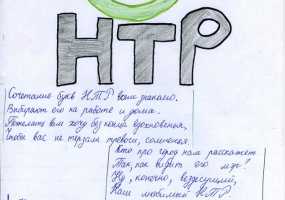 НТР
Сочетание букв НТР всем знакомо.
Выбирают его на работе и дома.
Пожелать вам хочу без конца вдохновения,
Чтобы вас не терзали тревоги, сомнения.
Кто про город нам расскажет
Так, как видит его
Ну, конечно, вездесущий,
Наш любимый НТР.